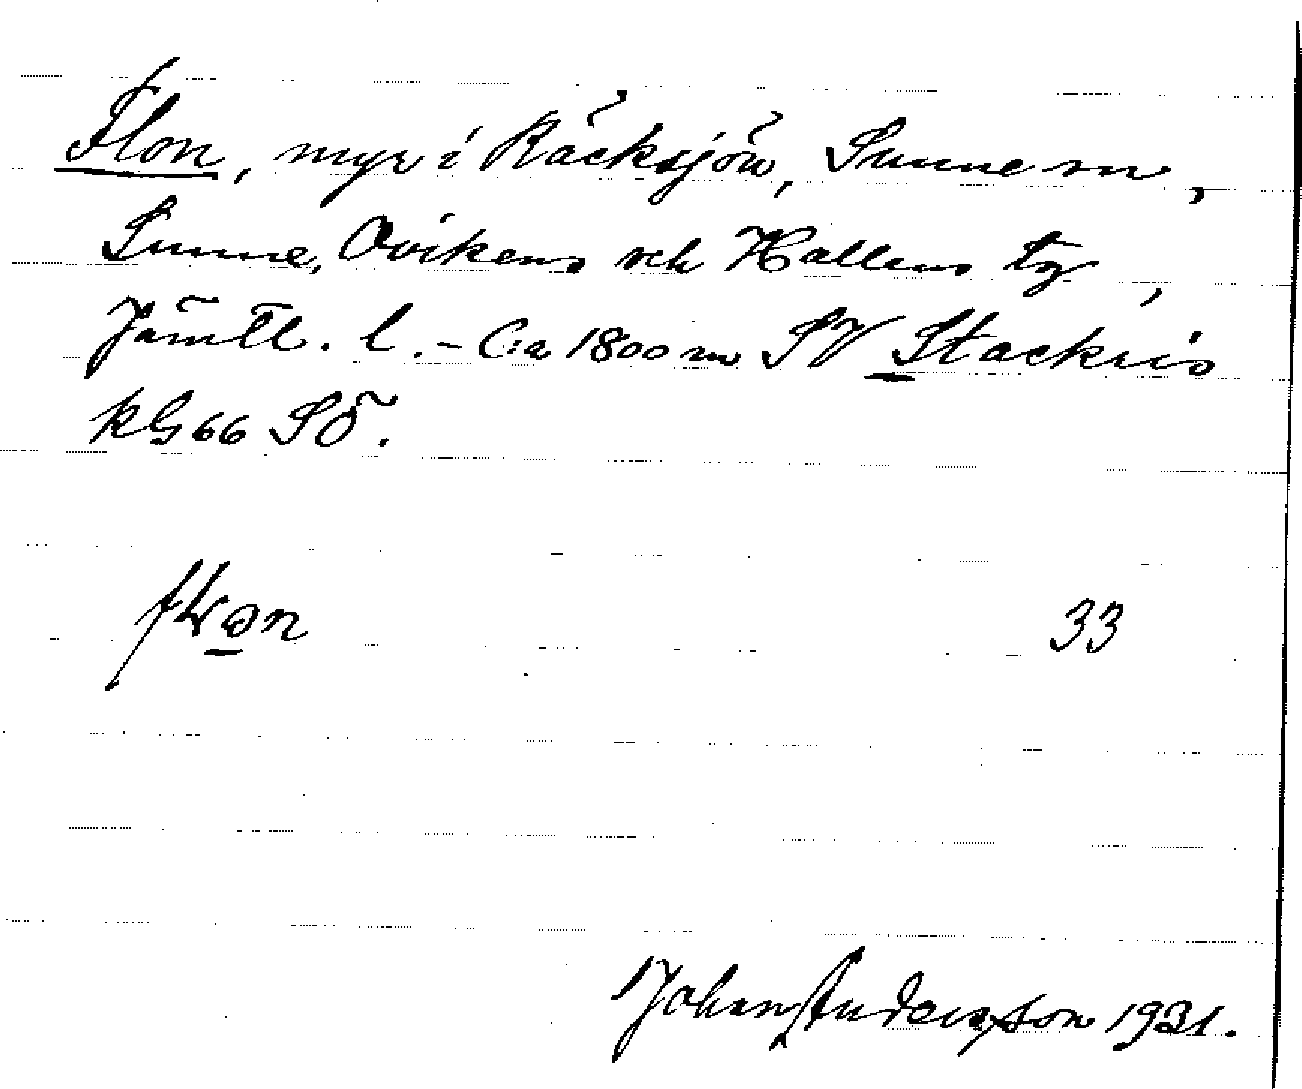 Flon, myr i Räcksjön, Sunne sn,
Sunne, Ovikens och Hallens tg,
Jämtl. l. – Ca 1800 m SV Stackris
kG66 SÖ.
33
Johan Anderson 1931.